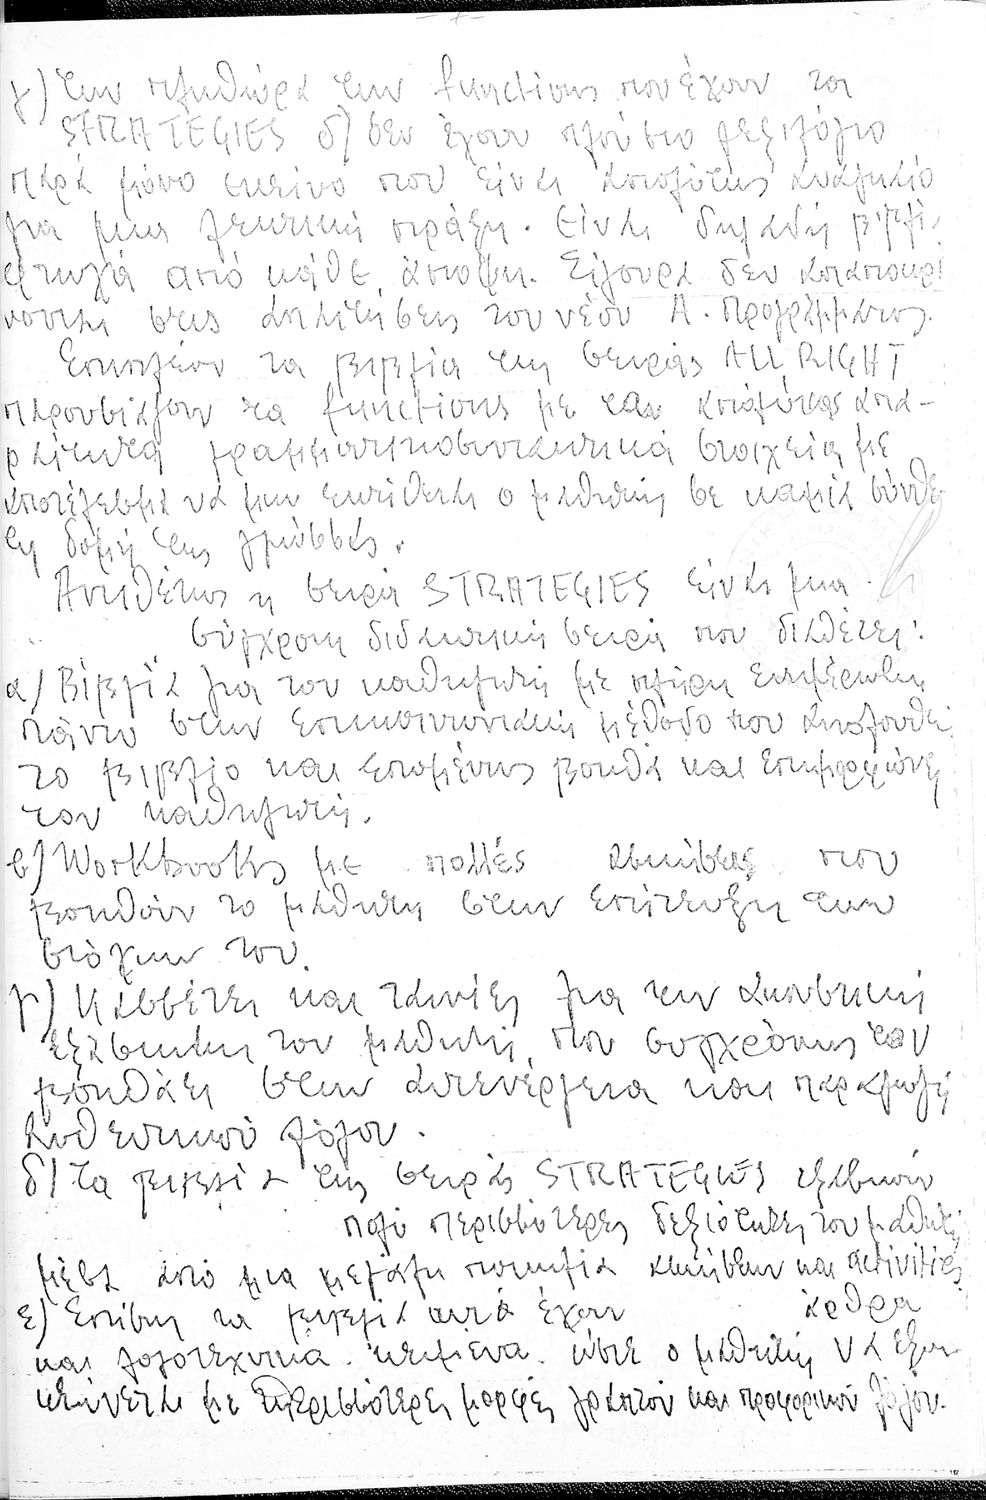 -7-
γ) την πληθώρα των functions που έχουν τα
STRATEGIES δ) δεν έχουν πλούσιο λεξιλόγιο
παρά μόνο εκείνο που είναι απολύτως αναγκαίο
για μια λεκτική πράξη. Είναι δηλαδή βιβλία
φτωχά από κάθε άποψη. Σίγουρα δεν ανταποκρί
νονται στις απαιτήσεις του νέου Α. Προγράμματος.
Επιπλέον τα βιβλία της σειράς ALL RIGHT
παρουσιάζουν τα functions με τα απολύτως απα-
ραίτητα γραμματικοσυντακτικά στοιχεία με
αποτέλεσμα να μην εκτίθεται ο μαθητής σε καμία σύνθε
τη δομή της γλώσσας.
Αντιθέτως η σειρά STRATEGIES είναι μια
σύγχρονη διδακτική σειρά που διαθέτει:
α) Βιβλία για τον καθηγητή με πλήρη ενημέρωση
πάνω στην επικοινωνιακή μέθοδο που ακολουθεί
το βιβλίο και επομένως βοηθά και επιμορφώνει
τον καθηγητή.
β) Workbooks με πολλές ασκήσεις που
βοηθούν το μαθητή στην επίτευξη των
στόχων του.
γ) Κασσέτες και ταινίες για την ακουστική
εξάσκηση του μαθητή, που συγχρόνως τον
βοηθάει στην απενέργεια και παραγωγή
αυθεντικού λόγου.
δ) τα βιβλία της σειράς STRATEGIES εξασκούν
πολύ περισσότερες δεξιότητες του μαθητή
μέσα από μια μεγάλη ποικιλία ασκήσεων και activities
ε) Επίσης τα βιβλία αυτά έχουν άρθρα
και λογοτεχνικά κείμενα ώστε ο μαθητής να εξοι
κειώνεται με περισσότερες μορφές γραπτού και προφορικού λόγου.